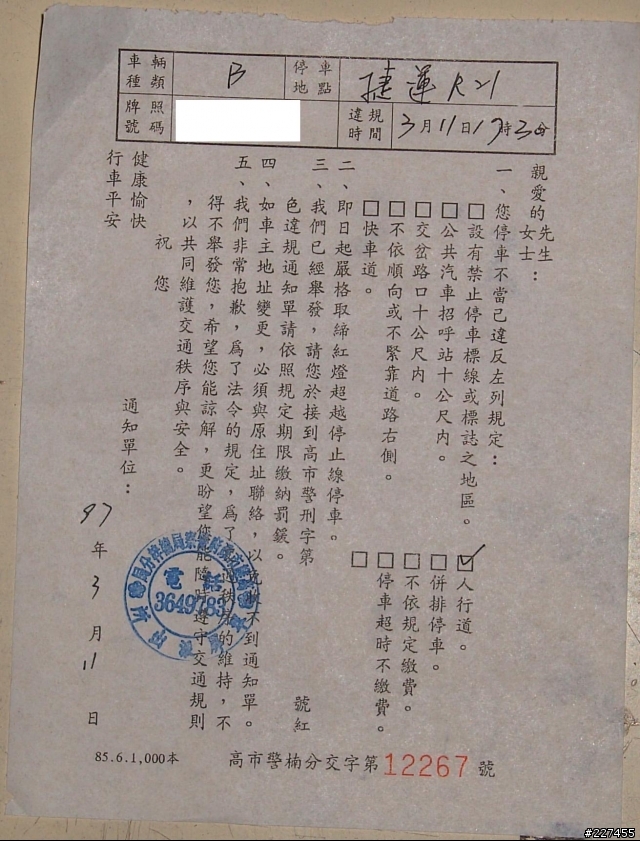 車輛種類
B
停車地點
捷運R21
牌照號碼
違規時間
3月11日17時35分
親愛的先生女士：
一、您停車不當已違反左列規定：
□設有禁止停車標線或標誌之地區。
□公共汽車招呼站十公尺內。
□交岔路口十公尺內。
□不依順向或不緊靠道路右側。
□快車道。
☑人行道。
□併排停車。
□不依規定繳費。
□停車超時不繳費。
□
二、即日起嚴格取締紅燈超越停止線停車。
三、我們已經舉發，請您於接到高市警刑字第 號紅
色違規通知單請依照規定期限繳納罰鍰。
四、如車主地址變更，必須與原住址聯絡，以 不到通知單。
五、我們非常抱歉，為了法令的規定，為了 秩序的維持，不
得不舉發您，希望您能諒解，更盼望您能隨時遵守交通規則
，以共同維護交通秩序與安全。
祝您
健康愉快
行車平安
通知單位：
電話
3649783
97年3月11日
85.6.1,000本
高市警楠分交字第12267號
#227455